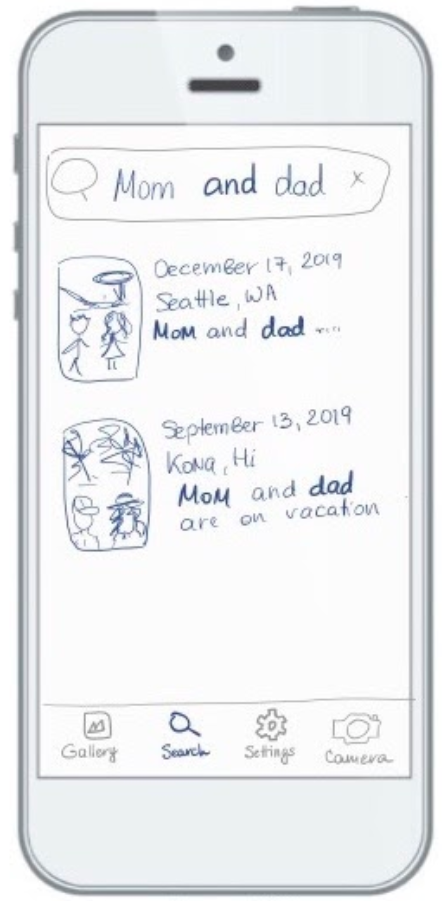 Mom and dad x
December 17, 2019
Seattle, WA
Mom and dad ....
September 13, 2019
Kona, Hi
Mom and dad
are on vacation
Gallery Search Settings Camera